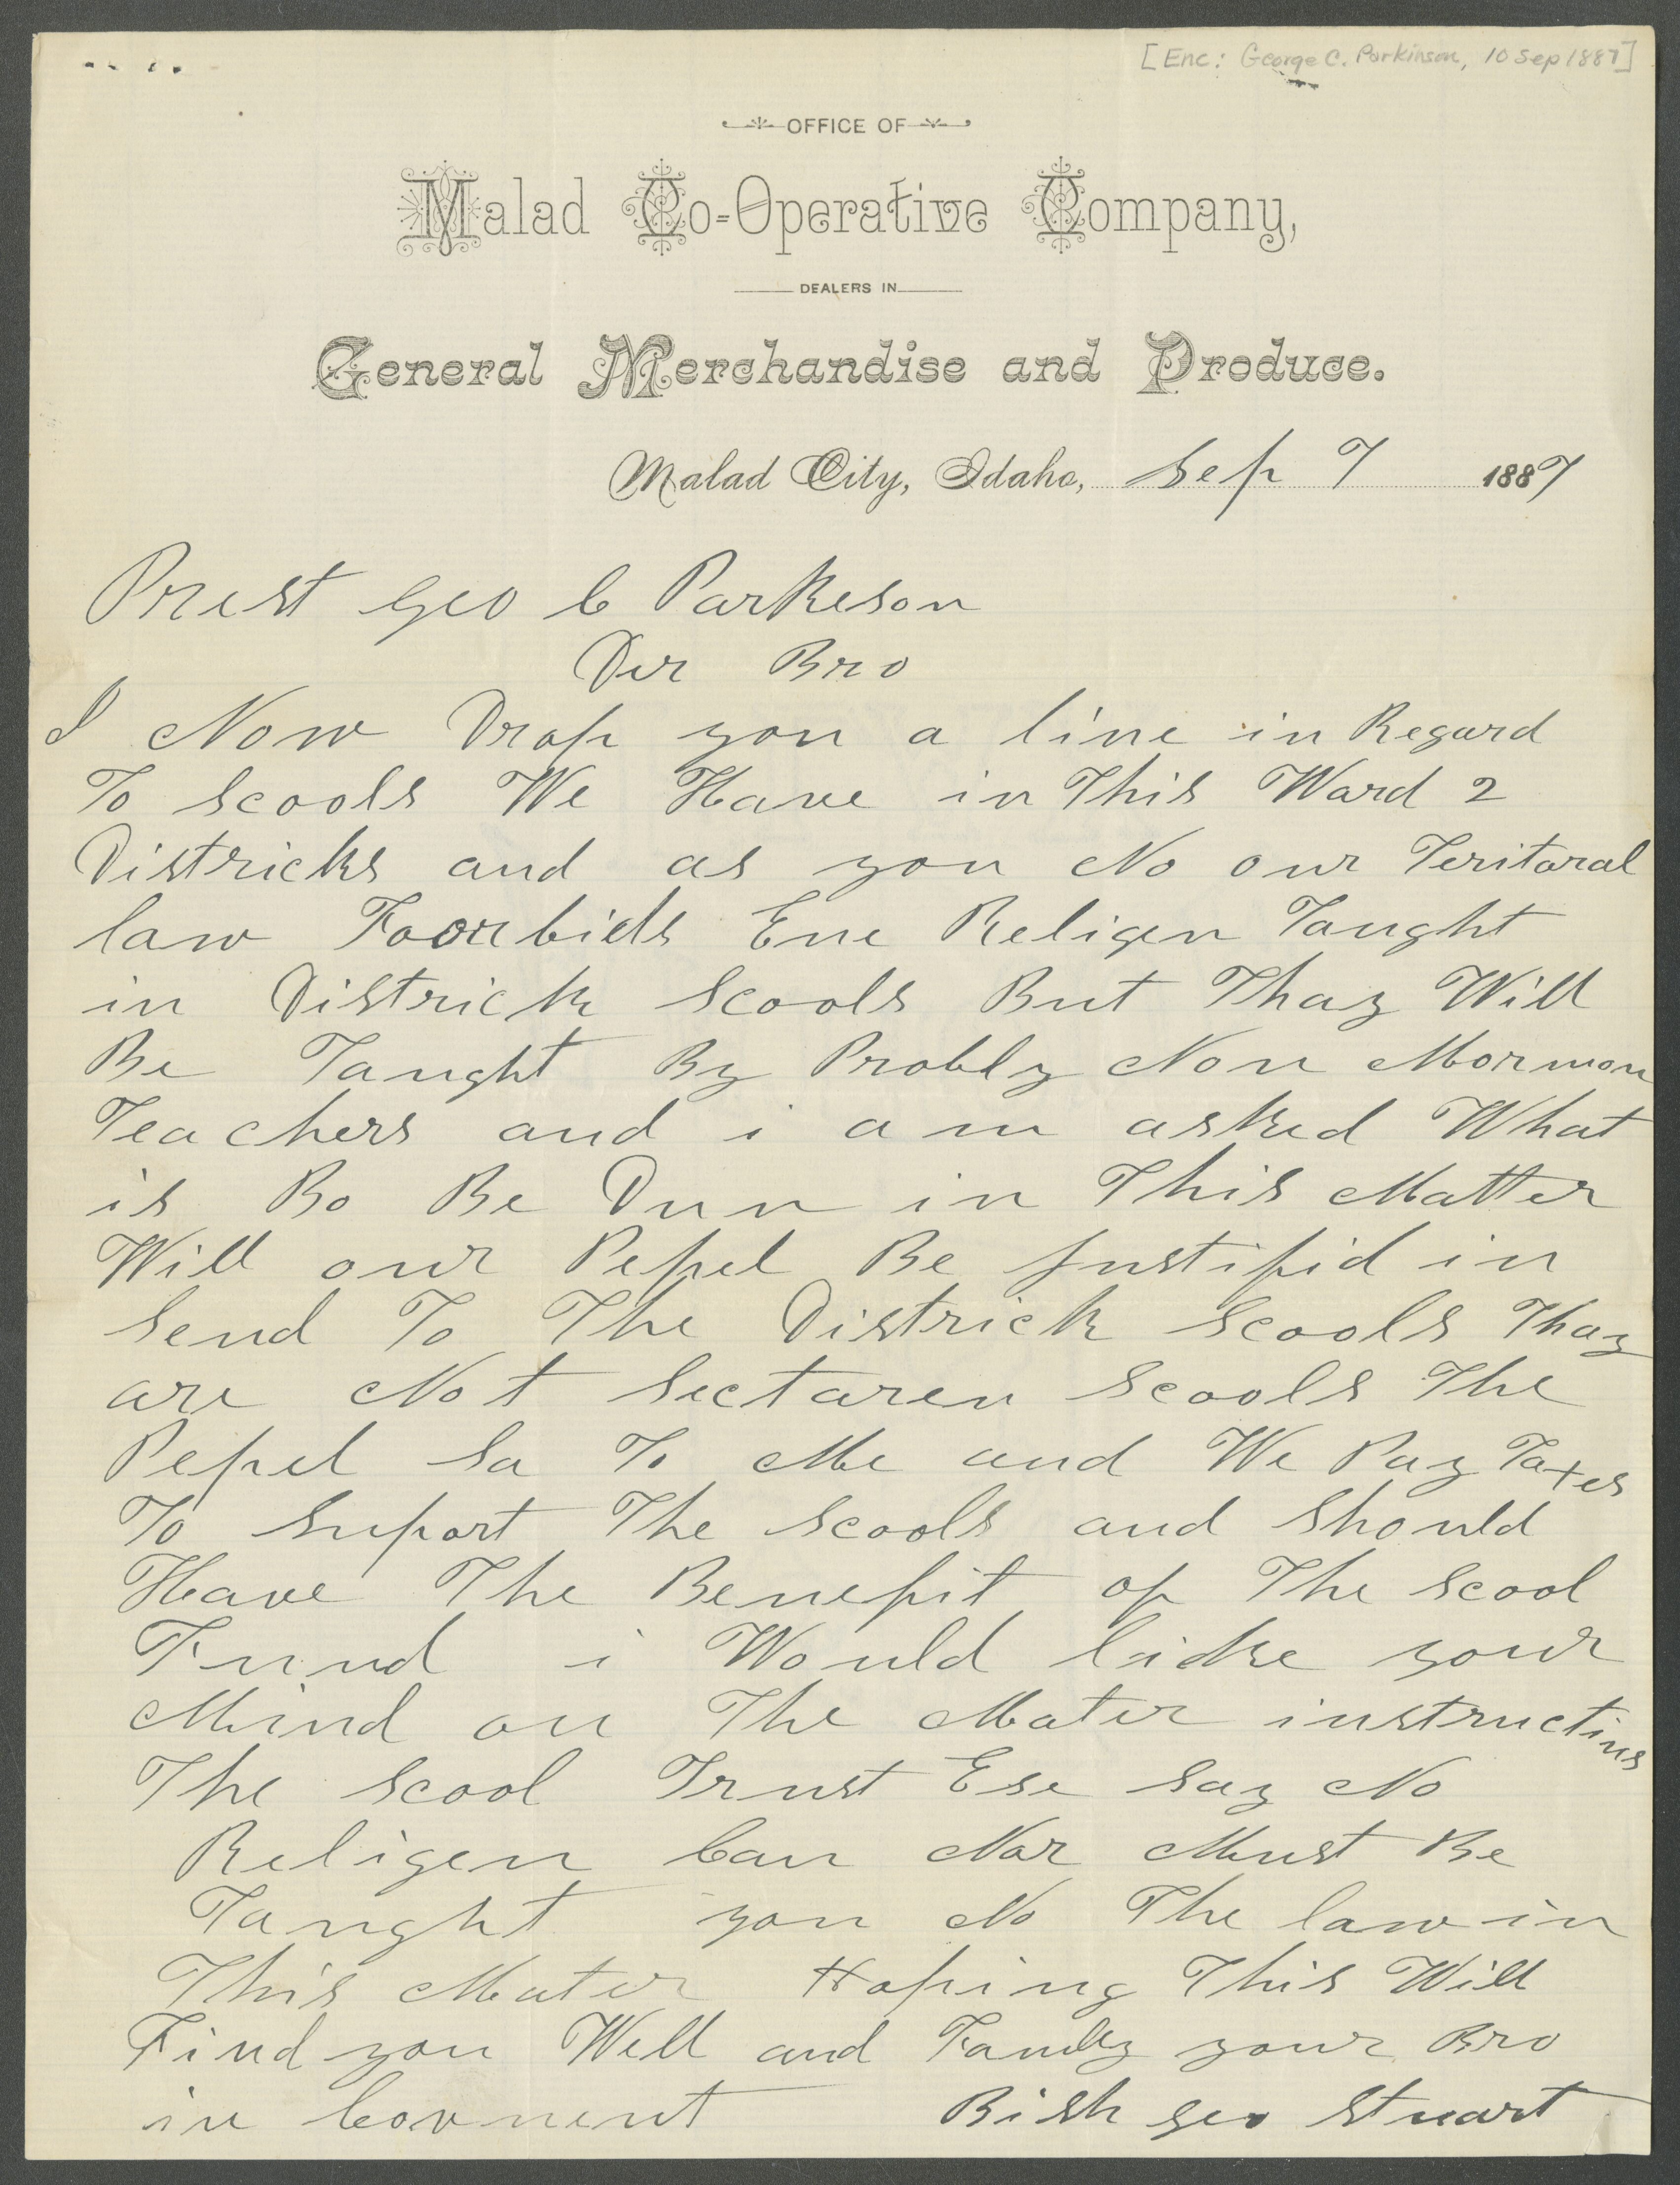 [Enc: George C. Parkinson, 10 Sep 1887]
OFFICE OF
Malad Co-Operative Company,
DEALERS IN
General Merchandise and Produce.
Malad City, Idaho, Sep 7 1887
Prest Geo C Parkeson
Der Bro
I Now Drop you a line in Regard
To Scools We Have in This Ward 2
Districks and as you No our Teritoral
law Foorbids Ene Religen Taught
in Districk Scools But Thay Will
Be Taught By Probly Non Mormon
Teachers and i am asked What
is Bo Be Dun in This Matter
Will our Pepel Be Justifid in
Send To The Districk Scools Thay
are Not Sectaren Scools The
Pepel Sa To Me and We Pay Taxes
To Suport The Scools and Should
Have The Benefit of The Scool
Fund i Would like your
Mind on The Mater instructins
The Scool Trust Ese Say No
Religen Can Nor Must Be
Taught you No The law in
This Mater Hoping This Will
Find you Well and Family your Bro
in Covnent Bish Geo Stuart